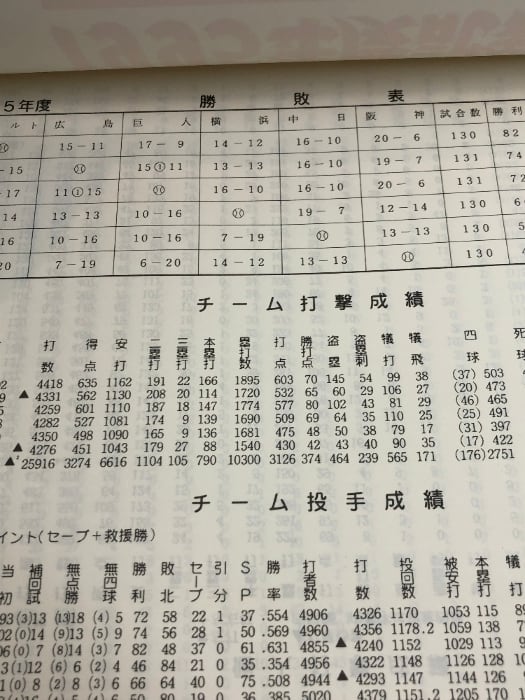 5年度 勝敗表
ルト 広島 巨人 横浜 中日 阪神 試合数 勝利
㊋ 15-11 17-9 14-12 16-10 20-6 130 82
-15 ㊋ 15①11 13-13 16-10 19-7 131 74
-17 11①15 ㊋ 16-10 16-10 20-6 131 72
14 13-13 10-16 ㊋ 19-7 12-14 130 6
16 10-16 10-16 7-19 ㊋ 13-13 130 5
20 7-19 6-20 14-12 13-13 ㊋ 130 4
チーム打撃成績
打数 得点 安打 二塁打 三塁打 本塁打 塁打数 打点 勝利打点 盗塁 盗塁刺 犠打 犠飛 四球 死球
02 4418 635 1162 191 22 166 1895 603 70 145 54 99 38 (37)503
9 ▲4331 562 1130 208 20 114 1720 532 65 60 29 106 27 (20)473
4259 601 1110 187 18 147 1774 577 80 102 43 81 29 (46)465
4282 527 1081 174 9 139 1690 509 69 64 35 110 25 (25)491
4350 498 1090 165 9 136 1681 475 48 50 38 79 17 (31)397
▲4276 451 1043 179 27 88 1540 430 42 43 40 90 35 (17)422
▲25916 3274 6616 1104 105 790 10300 3126 374 464 239 565 171 (176)2751
チーム投手成績
イント(セーブ+救援勝)
当初 補回試 無点勝 無四球 勝利 敗北 セーブ 引分 SP 勝率 打者数 打数 投回数 被安打 本塁打 犠打
93(3) (13)18 (4)5 72 58 22 1 37 .554 4906 4326 1170 1053 115
02(0)14 (9)13 (5)9 74 56 28 1 50 .569 4960 4356 1178.2 1059 138
06(0)7 (8)14 (3)7 82 48 37 0 61 .631 4855 ▲4240 1152 1029 113
3(1)12 (6)6 (2)4 46 84 21 0 35 .354 4956 4322 1148 1126 128
1(0)8 (2)8 (3)6 66 64 40 0 75 .508 4944 ▲4293 1147 1144 126
36 .385 5020 4379 1151